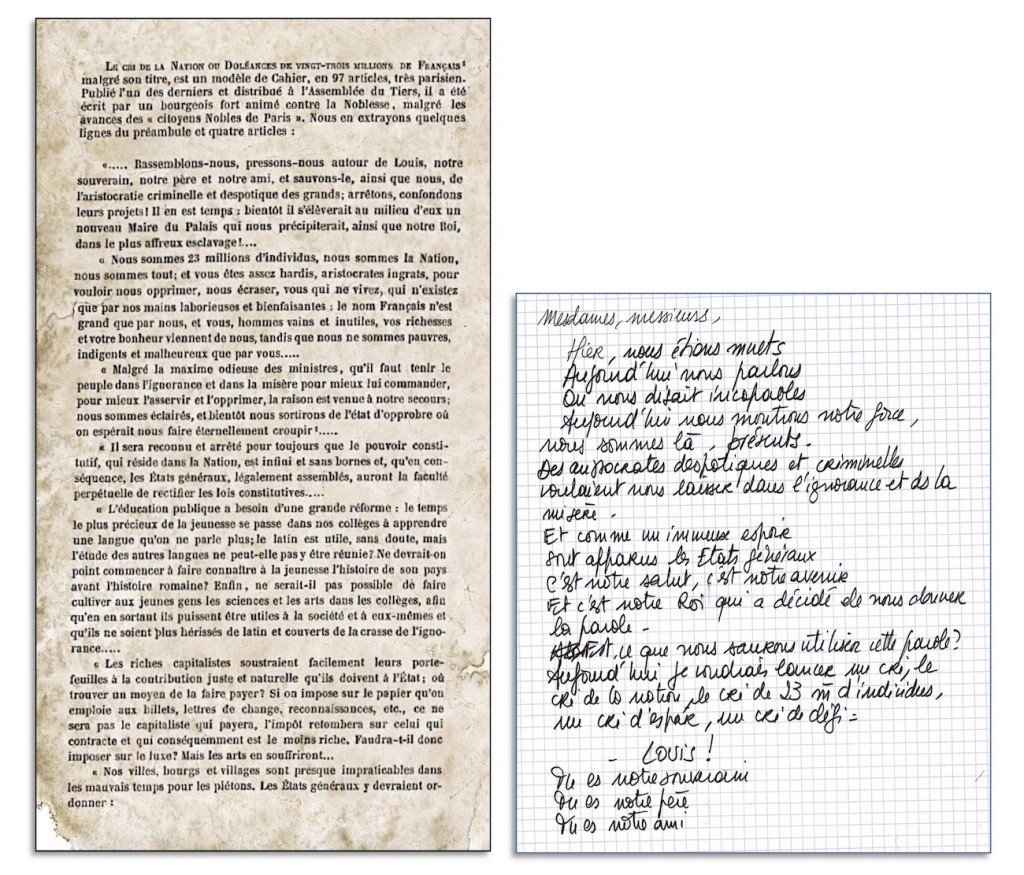 LE CRI DE LA NATION OU DOLÉANCES DE VINGT-TROIS MILLIONS DE FRANÇAIS¹
malgré son titre, est un modèle de Cahier, en 97 articles, très parisien.
Publié l'un des derniers et distribué à l'Assemblée du Tiers, il a été
écrit par un bourgeois fort animé contre la Noblesse, malgré les
avances des « citoyens Nobles de Paris ». Nous en extrayons quelques
lignes du préambule et quatre articles :
«..... Rassemblons-nous, pressons-nous autour de Louis, notre
souverain, notre père et notre ami, et sauvons-le, ainsi que nous, de
l'aristocratie criminelle et despotique des grands; arrêtons, confondons
leurs projets! Il en est temps : bientôt il s'élèverait au milieu d'eux un
nouveau Maire du Palais qui nous précipiterait, ainsi que notre Roi,
dans le plus affreux esclavage!....
« Nous sommes 23 millions d'individus, nous sommes la Nation,
nous sommes tout; et vous êtes assez hardis, aristocrates ingrats, pour
vouloir nous opprimer, nous écraser, vous qui ne vivez, qui n'existez
que par nos mains laborieuses et bienfaisantes : le nom Français n'est
grand que par nous, et vous, hommes vains et inutiles, vos richesses
et votre bonheur viennent de nous, tandis que nous ne sommes pauvres,
indigents et malheureux que par vous.....
« Malgré la maxime odieuse des ministres, qu'il faut tenir le
peuple dans l'ignorance et dans la misère pour mieux lui commander,
pour mieux l'asservir et l'opprimer, la raison est venue à notre secours;
nous sommes éclairés, et bientôt nous sortirons de l'état d'opprobre où
on espérait nous faire éternellement croupir¹.....
« Il sera reconnu et arrêté pour toujours que le pouvoir consti-
tutif, qui réside dans la Nation, est infini et sans bornes et, qu'en con-
séquence, les États généraux, légalement assemblés, auront la faculté
perpétuelle de rectifier les lois constitutives.....
« L'éducation publique a besoin d'une grande réforme : le temps
le plus précieux de la jeunesse se passe dans nos collèges à apprendre
une langue qu'on ne parle plus; le latin est utile, sans doute, mais
l'étude des autres langues ne peut-elle pas y être réunie? Ne devrait-on
point commencer à faire connaître à la jeunesse l'histoire de son pays
avant l'histoire romaine? Enfin, ne serait-il pas possible de faire
cultiver aux jeunes gens les sciences et les arts dans les collèges, afin
qu'en en sortant ils puissent être utiles à la société et à eux-mêmes et
qu'ils ne soient plus hérissés de latin et couverts de la crasse de l'igno-
rance.....
« Les riches capitalistes soustraient facilement leurs porte-
feuilles à la contribution juste et naturelle qu'ils doivent à l'État; où
trouver un moyen de la faire payer? Si on impose sur le papier qu'on
emploie aux billets, lettres de change, reconnaissances, etc., ce ne
sera pas le capitaliste qui payera, l'impôt retombera sur celui qui
contracte et qui conséquemment est le moins riche. Faudra-t-il donc
imposer sur le luxe? Mais les arts en souffriront...
« Nos villes, bourgs et villages sont presque impraticables dans
les mauvais temps pour les piétons. Les États généraux y devraient or-
donner :
Mesdames, messieurs,
Hier, nous étions muets
Aujourd'hui nous parlons
On nous disait incapables
Aujourd'hui nous montrons notre force,
nous sommes là, présents.
Des aristocrates despotiques et criminelles
voulaient nous laisser dans l'ignorance et ds la
misère.
Et comme un immense espoir
sont apparus les Etats généraux
C'est notre salut, c'est notre avenir
Et c'est notre Roi qui a décidé de nous donner
la parole -
Est ce que nous saurons utiliser cette parole?
Aujourd'hui je voudrais lancer un cri, le
cri de la nation, le cri de 23 m d'individus,
un cri d'espoir, un cri de défi =
- LOUIS !
Tu es notre souverain
Tu es notre père
Tu es notre ami